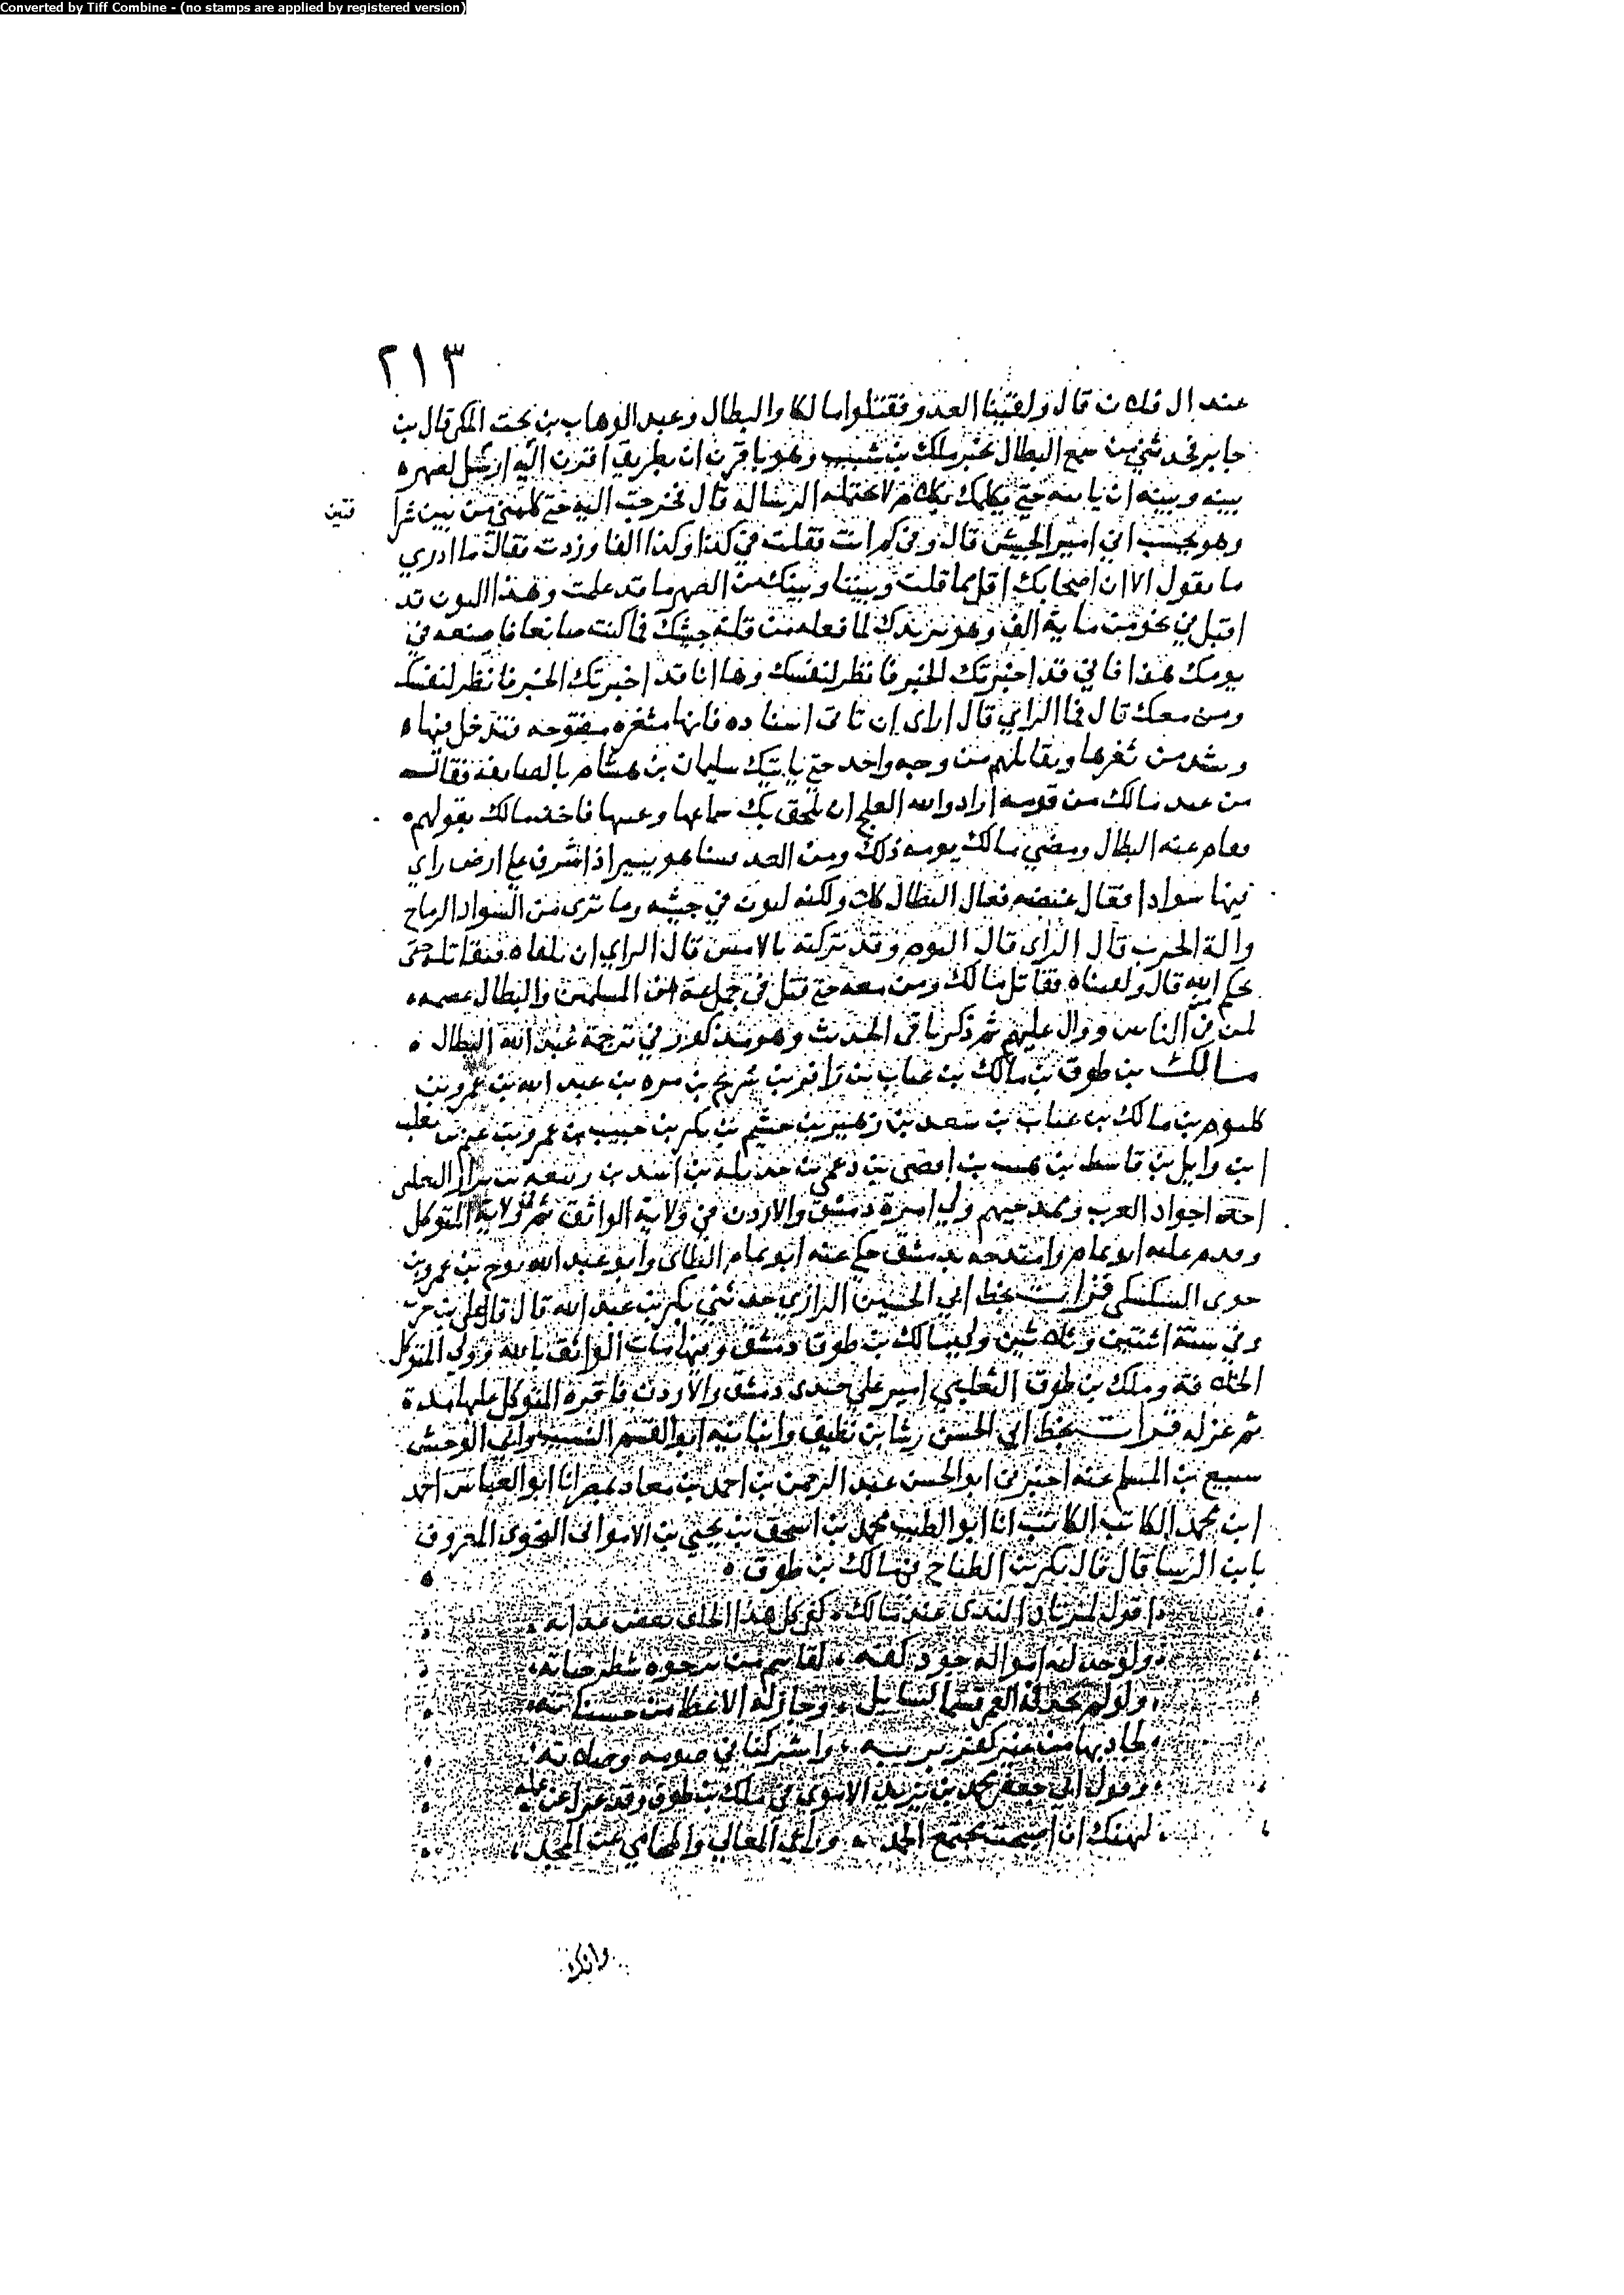 Converted by Tiff Combine - (no stamps are applied by registered version)
٢١٣
عند ال فلان قال ولقينا العدو فقتلوا مالكا والبطال وعبد الوهاب بن بخت المكي قال بن
جابر فحدثني من سمع البطال يخبر ملك بن شبيب وهو باقرن ان بطريق اقرن اليه ارسل لصهره
بينه وبينه ان ياتيه حتى يكلمك بكلام لا تحتمله الرسالة قال فخرجت اليه حتى كلمني من بين شرا
فتين
وهو يحسب اني امير الجيش قال وفي كم انت فقلت في كذا وكذا الفا وزدت فقال ما ادري
ما تقول الا ان اصحابك اقل مما قلت وبيننا وبينك من الصهر ما قد علمت وهذا اليون قد
اقبل في نحو من ماية الف وهو يريدك لما فعله من قلة جيشك فما كنت صانعا فاصنعه في
يومك هذا فاني قد اخبرتك الخبر فانظر لنفسك وها انا قد اخبرتك الخبر فانظر لنفسك
ومن معك قال فما الراي قال اراى ان تاتي سناده فانها مثغره مفتوحه فتدخل فيها
وتشد من ثغرها وتقاتلهم من وجه واحد حتى ياتيك سليمان بن هشام بالصايفة فقال
من عند مالك من قومه اراد والله العلج ان يلحق بك فاخذ مالك بقولهم
فقام عنه البطال ومضى مالك يومه ذلك ومن الغد بينا هو يسير اذ اشرف على ارض راي
فيها سوادا فقال غيضه فقال البطال كلا ولكنه ليون في جيشه وما ترى من السواد الرماح
والة الحرب قال الراى قال اليوم وقد تركته بالامس قال الراي ان نلقاه فنقاتله حتى
يحكم الله قال ولقيناه فقاتل مالك ومن معه حتى قتل في جماعة من المسلمين والبطال عصمه
لمن من الناس ووال عليهم ثم ذكر باقي الحديث وهو مذكور في ترجمة عبد الله البطال
مالك بن طوق بن مالك بن عتاب بن زافر بن شريح بن مره بن عبد الله بن عمرو بن
كلثوم بن مالك بن عتاب بن سعد بن زهير بن جشم بن بكر بن حبيب بن عمرو بن غنم بن تغلب
ابن وايل بن قاسط بن هنب بن افصى بن دعمي بن جديلة بن اسد بن ربيعه بن نزار التغلبي
احد اجواد العرب وممدحيهم ولي امرة دمشق والاردن في ولاية الواثق ثم ولاية المتوكل
وقدم عليه ابو تمام وامتدحه بدمشق حكى عنه ابو تمام الطائي وابو عبد الله نوح بن عمرو بن
حوى السكسكي قرات بخط ابي الحسين الرازي حدثني بكر بن عبد الله قال قال علي بن حرب
وفي سنة اثنتين وثلاثين ولي مالك بن طوق دمشق وفيها مات الواثق بالله وولي المتوكل
الخلافة وملك بن طوق التغلبي امير على جندى دمشق والاردن فاقره المتوكل عليها مدة
ثم عزله قرات بخط ابي الحسن رشا بن نظيف وانبانيه ابو القسم النسيب وابي الوحش
سبيع بن المسلم عنه اخبرني ابو الحسن عبد الرحمن بن احمد بن معاذ بمصر انا ابو العباس احمد
ابن محمد الكاتب الكاتب انا ابو الطيب محمد بن اسحق بن يحيى بن النحوى المعروف
بابن الوشا قال قال بكر بن النطاح في مالك بن طوق
اقول لمرتاد الندى عند مالك كفى كل هذا الخلق بعض عداته
ولو خذلت امواله جود كفه لقاسم من يرجوه شطر حياته
ولو لم يجد في العمر قسما لسايل وجاز له الاعطا من حسناته
لجاد بها من غير كفر بربه واشركنا في صومه وصلاته
وقول ابي جعفر محمد بن يزيد الاموى في ملك بن طوق وقد عزل عن عمله
ليهنك ان اصبحت مجتمع الحمد وراعي المعالي والمحامي عن المجد
وانك